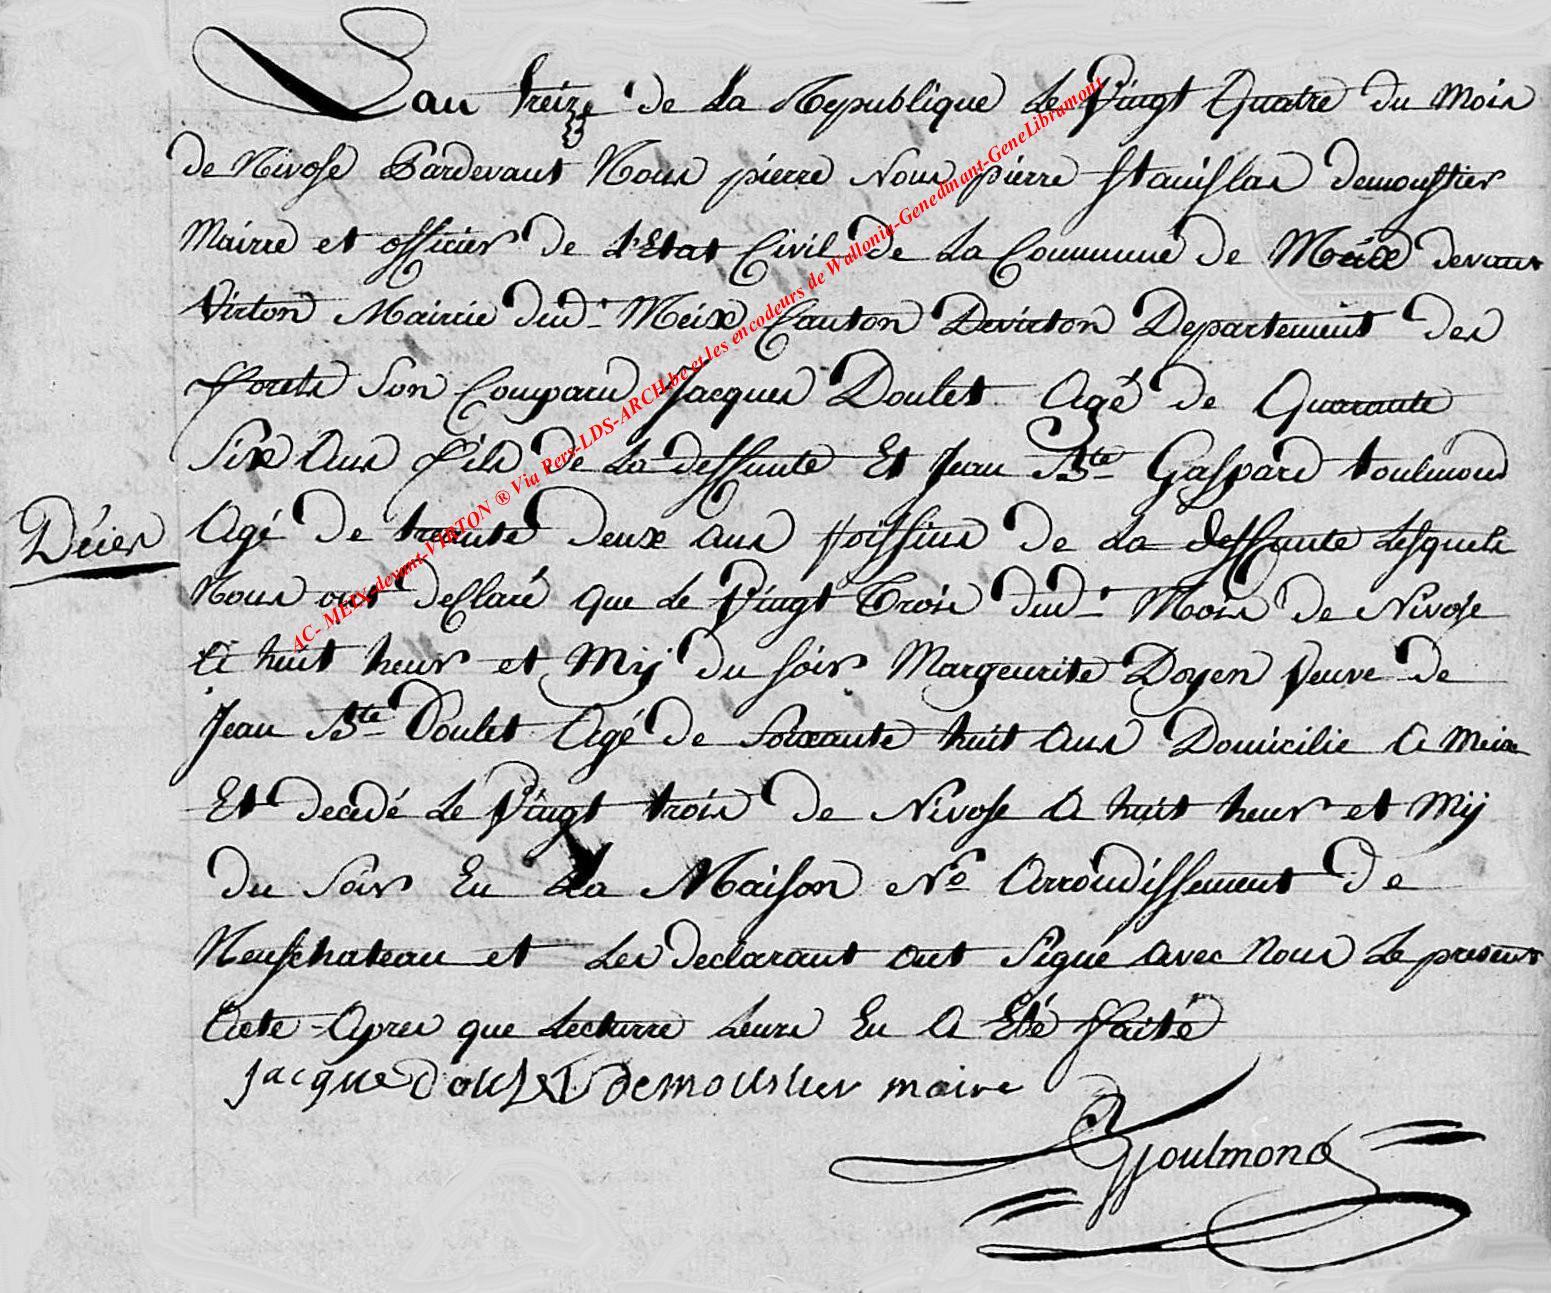 Lan treize de La Republique Le Vingt Quatre du Mois
de Nivose Pardevant Nous pierre Nous pierre stanislas demoustier
Mairie et officier de L'Etat Civil de La Commune de Meix devant
Virton Mairie dud. Meix Canton Devirton Departement des
forets Son Comparu Jacques Doulet Agé de Quarante
Six Ans fils de La deffunte Et Jean Bte Gaspard toulmond
Décies
Agé de trente deux ans Voissins de La deffunte Lesquels
Nous ont déclaré que Le Vingt Trois dud. Mois de Nivose
à huit heur et Mij du soir Margeurite Doyen Veuve de
Jean Bte Doulet Agé de Soixante huit Ans Domicilié A Meix
Et decedé Le Vingt trois de Nivose A huit heur et Mij
du Soir En La Maison No Arrondissement de
Neufchateau et Les declarant ont Signé avec Nous Le present
Acte Apres que Lecturre Leurs En A Eté faité
Jacque doulet demoustier maire
Toulmond
AC- MEIX-devant-VIRTON ® Via Pers-LDS-ARCH.be et les encodeurs de Wallonia-Genedinant-GeneLibramont